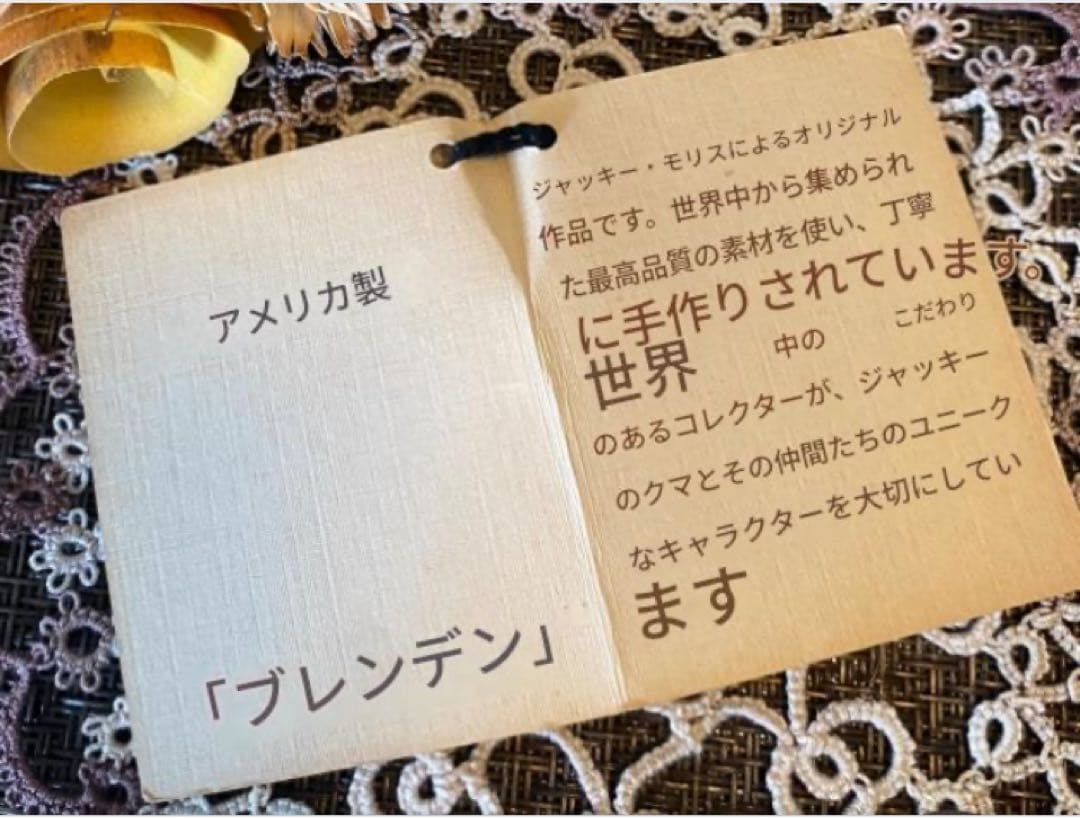 アメリカ製
「ブレンデン」
ジャッキー・モリスによるオリジナル
作品です。世界中から集められ
た最高品質の素材を使い、丁寧
に手作りされています。
世界 中の こだわり
のあるコレクターが、ジャッキー
のクマとその仲間たちのユニーク
なキャラクターを大切にしてい
ます